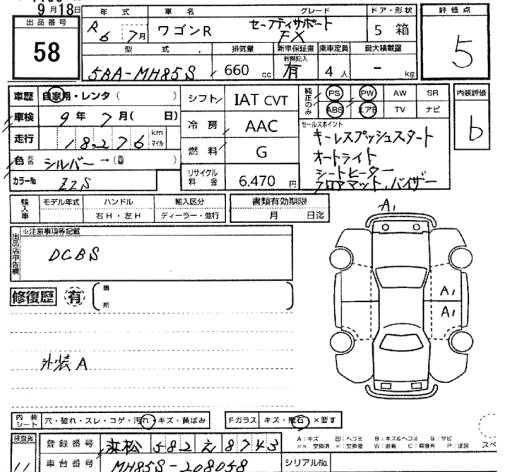 9月18日
出品番号
58
年式 車名 グレード ドア・形状
R6 7月 ワゴンR セーフティサポート FX 5 箱
評価点
5
型式 排気量 新車保証書 乗車定員 最大積載量
5BA-MH85S 660 cc 有 4人 - kg
車歴 自家用・レンタ( )
車検 9年7月(日)
走行 18276 km マイル
色 シルバー→( )
カラーNo Z2S
シフト IAT CVT
冷房 AAC
燃料 G
リサイクル料金 6.470円
純正のみ PS PW AW SR
ABS エアB TV ナビ
内装評価
b
セールスポイント
キーレスプッシュスタート
オートライト
シートヒーター
フロアマット、バイザー
輸入車 モデル年式 ハンドル 輸入区分
右H・左H ディーラー・並行
書類有効期限
月 日迄
※注意事項等記載
DCBS
修復歴 有 箇所
外装A
A1
A1
A1
内装シート 穴・破れ・スレ・コゲ・汚れ・キズ・黄ばみ
Fガラス キズ・飛石・×要す
A:キズ B:キズ&ヘコミ S:サビ
登録番号 浜松 582 え 8743
車台番号 MH85S-208058
シリアルNo.